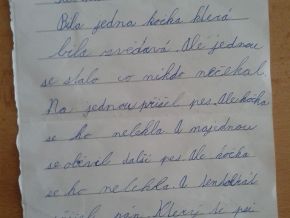 Bila jedna kočka která
bila zvědavá. Ale jednou
se stalo co nikdo nečekal.
Na jednou přišel pes. Ale kočka
se ho nelekla. A najednou
se oběvil další pes. Ale kočka
se ho nelekla. A tenhokrát
pán. Který se psi